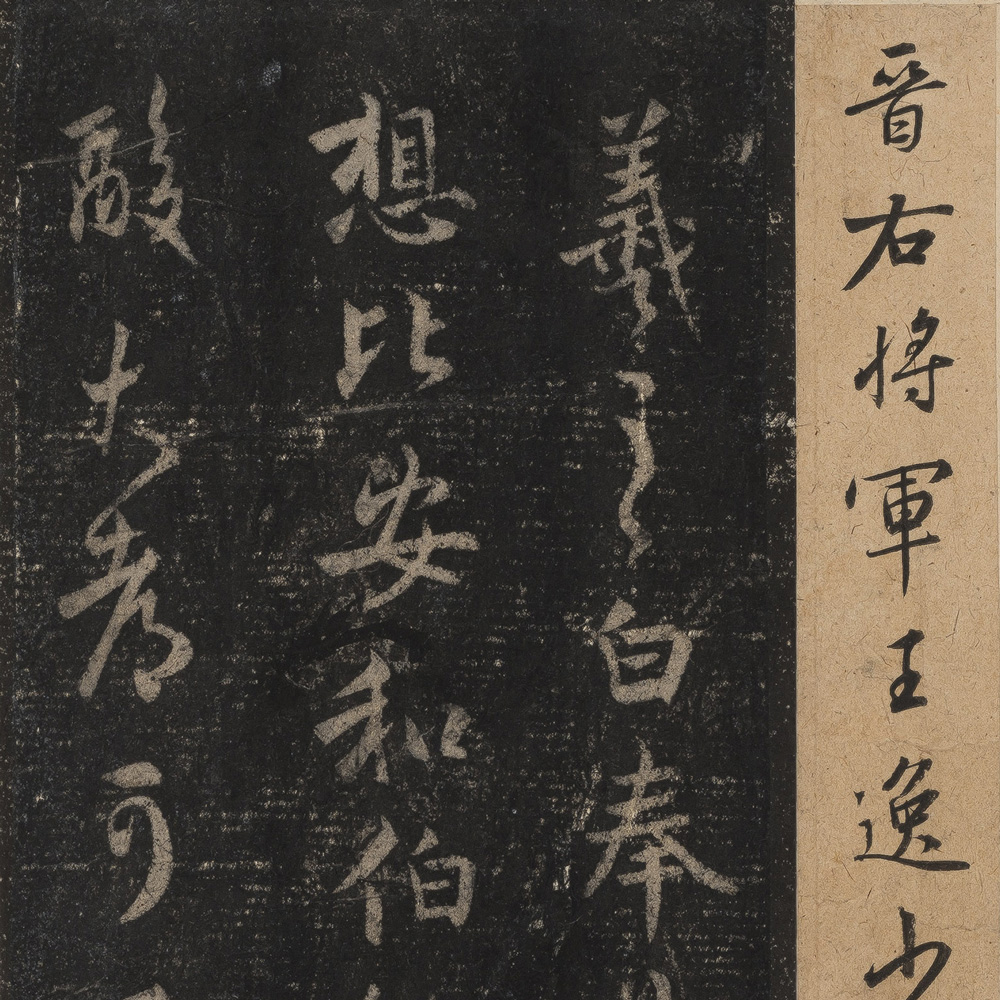 晋右将軍王逸少
羲之白奉
想比安和伯
酸大
可